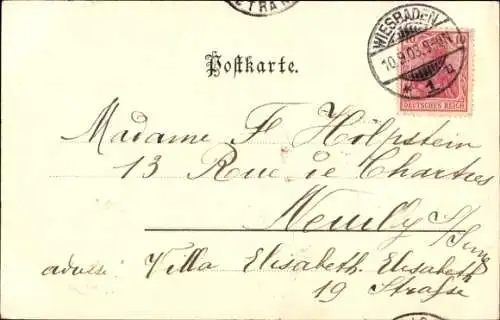 ETRAN
WIESBADEN
10.9.03.9-10N
* 1 a
DEUTSCHES REICH
Postkarte.
Madame F Holpstein
13 Rue de Chartres
Neuilly s/Seine
adresse: Villa Elisabeth. Elisabeth
19 Strasse